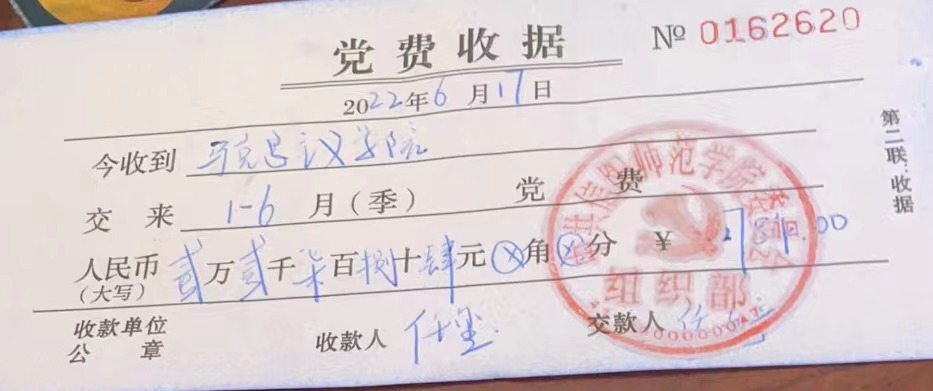 党费收据 № 0162620
2022年6月17日
今收到 马克思主义学院
交来 1-6 月(季) 党费
人民币 贰万贰千柒百捌十肆元⊗角⊗分 ¥
(大写)
收款单位
公章
收款人
交款人
第二联:收据
师范学院
组织部